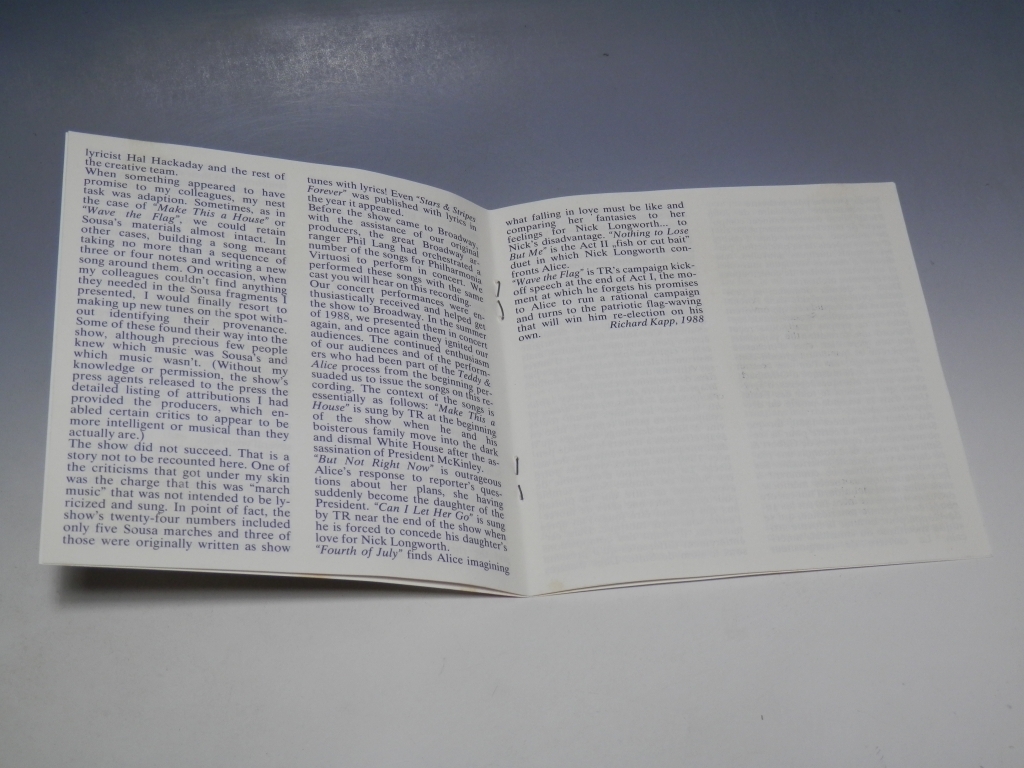 lyricist Hal Hackaday and the rest of
the creative team.
When something appeared to have
promise to my colleagues, my nest
task was adaption. Sometimes, as in
the case of "Make This a House" or
"Wave the Flag", we could retain
Sousa's materials almost intact. In
other cases, building a song meant
taking no more than a sequence of
three or four notes and writing a new
song around them. On occasion, when
my colleagues couldn't find anything
they needed in the Sousa fragments I
presented, I would finally resort to
making up new tunes on the spot with-
out identifying their provenance.
Some of these found their way into the
show, although precious few people
knew which music was Sousa's and
which music wasn't. (Without my
knowledge or permission, the show's
press agents released to the press the
detailed listing of attributions I had
provided the producers, which en-
abled certain critics to appear to be
more intelligent or musical than they
actually are.)
The show did not succeed. That is a
story not to be recounted here. One of
the criticisms that got under my skin
was the charge that this was "march
music" that was not intended to be ly-
ricized and sung. In point of fact, the
show's twenty-four numbers included
only five Sousa marches and three of
those were originally written as show
tunes with lyrics! Even "Stars & Stripes
Forever" was published with lyrics in
the year it appeared.
Before the show came to Broadway,
with the assistance of our original
producers, the great Broadway ar-
ranger Phil Lang had orchestrated a
number of the songs for Philharmonia
Virtuosi to perform in concert. We
performed these songs with the same
cast you will hear on this recording.
Our concert performances were en-
thusiastically received and helped get
the show to Broadway. In the summer
of 1988, we presented them in concert
again, and once again they ignited our
audiences. The continued enthusiasm
of our audiences and of the perform-
ers who had been part of the Teddy &
Alice process from the beginning per-
suaded us to issue the songs on this re-
cording. The context of the songs is
essentially as follows: "Make This a
House" is sung by TR at the beginning
of the show when he and his
boisterous family move into the dark
and dismal White House after the as-
sassination of President McKinley.
"But Not Right Now" is outrageous
Alice's response to reporter's ques-
tions about her plans, she having
suddenly become the daughter of the
President. "Can I Let Her Go" is sung
by TR near the end of the show when
he is forced to concede his daughter's
love for Nick Longworth.
"Fourth of July" finds Alice imagining
what falling in love must be like and
comparing her fantasies to her
feelings for Nick Longworth... to
Nick's disadvantage. "Nothing to Lose
But Me" is the Act II „fish or cut bait"
duet in which Nick Longworth con-
fronts Alice.
"Wave the Flag" is TR's campaign kick-
off speech at the end of Act I, the mo-
ment at which he forgets his promises
to Alice to run a rational campaign
and turns to the patriotic flag-waving
that will win him re-election on his
own.
Richard Kapp, 1988